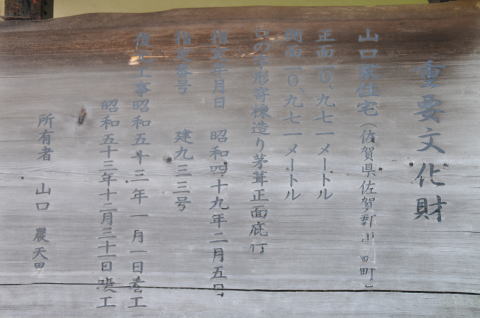 重要文化財
山口家住宅(佐賀県佐賀郡川副町)
正面一〇、九七一メートル
側面一〇、九七一メートル
コの字形寄棟造り茅葺正面庇付
指定年月日 昭和四十九年二月五日
指定番号 建九三三号
復元工事昭和五十三年一月一日着工
昭和五十三年十二月三十一日竣工
所有者 山口